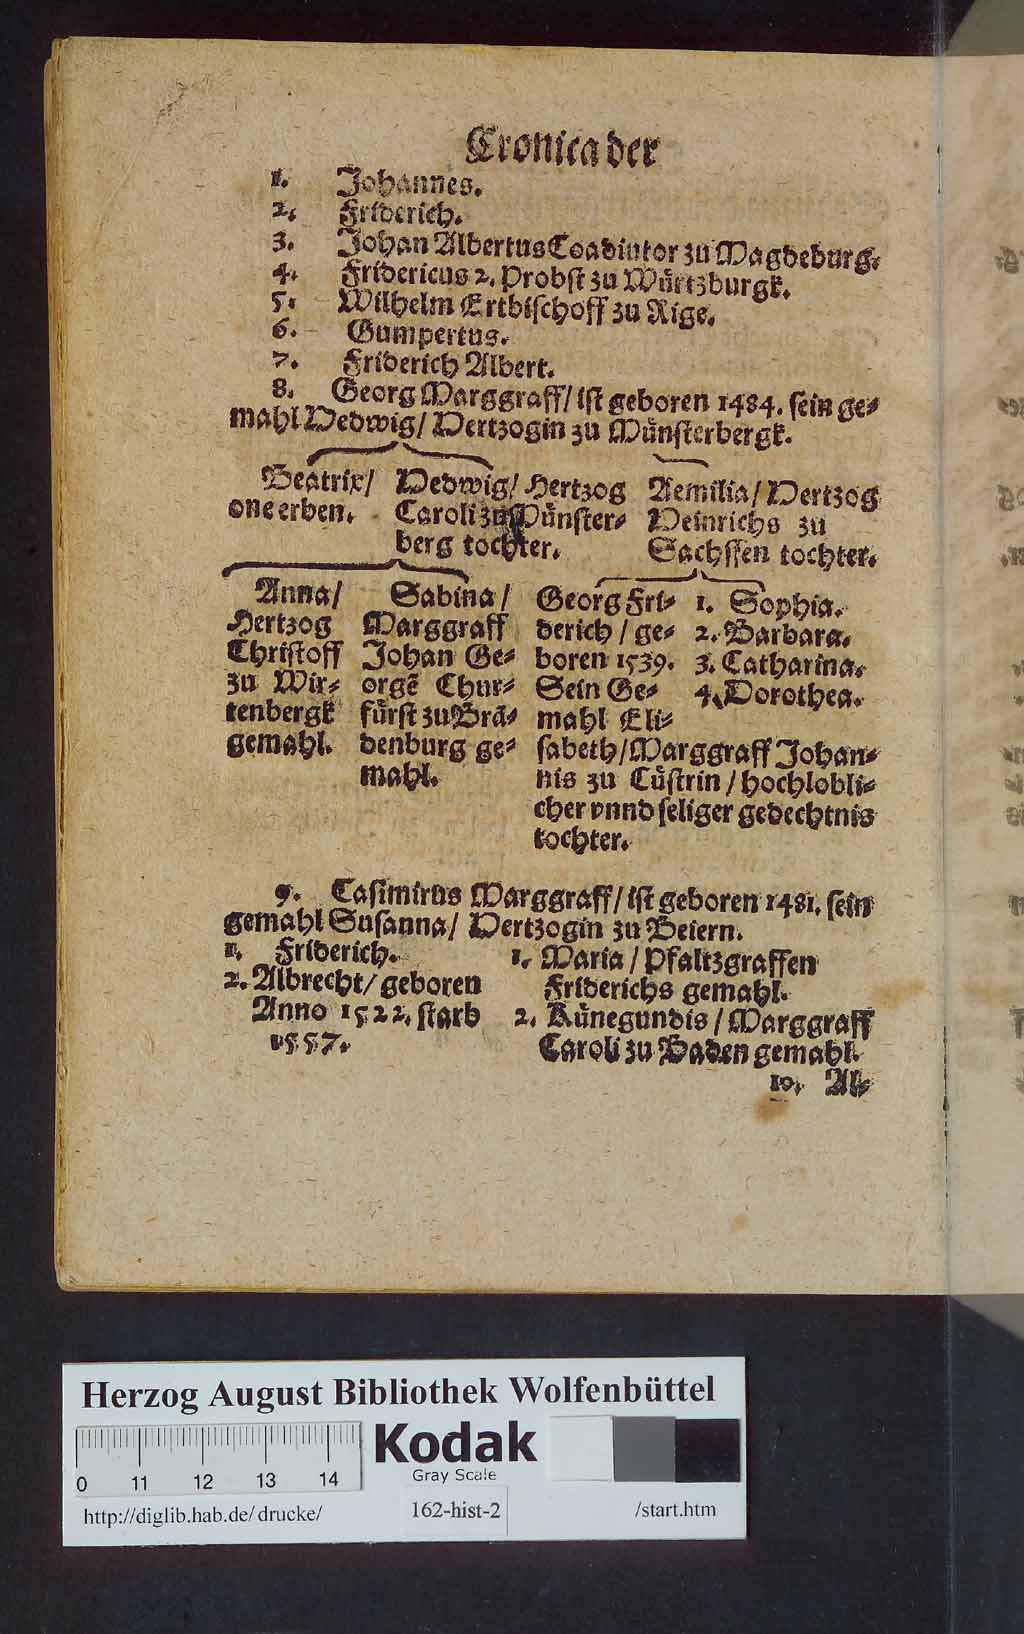 Cronica der
1. Johannes.
2. Friderich.
3. Johan Albertus Coadiutor zu Magdeburg.
4. Fridericus 2. Probst zu Würtzburgk.
5. Wilhelm Ertbischoff zu Rige.
6. Gumpertus.
7. Friderich Albert.
8. Georg Marggraff/ ist geboren 1484. sein ge-
mahl Hedwig/ Hertzogin zu Münsterbergk.
Beatrix/
one erben.
Hedwig/ Hertzog
Caroli zu Münster-
berg tochter.
Aemilia/ Hertzog
Heinrichs zu
Sachssen tochter.
Anna/
Hertzog
Christoff
zu Wir-
tenbergk
gemahl.
Sabina/
Marggraff
Johan Ge-
orgẽ Chur-
fürst zu Brã-
denburg ge-
mahl.
Georg Fri-
derich / ge-
boren 1539.
Sein Ge-
mahl Eli-
sabeth/ Marggraff Johan-
nis zu Cüstrin / hochlobli-
cher vnnd seliger gedechtnis
tochter.
1. Sophia.
2. Barbara.
3. Catharina.
4. Dorothea.
9. Casimirus Marggraff/ ist geboren 1481. sein
gemahl Susanna/ Hertzogin zu Beiern.
1. Friderich.
2. Albrecht/ geboren
Anno 1522. starb
1557.
1. Maria / Pfaltzgraffen
Friderichs gemahl.
2. Künegundis / Marggraff
Caroli zu Baden gemahl.
10. Al-
Herzog August Bibliothek Wolfenbüttel
0 11 12 13 14
Kodak
Gray Scale
http://diglib.hab.de/drucke/ 162-hist-2 /start.htm